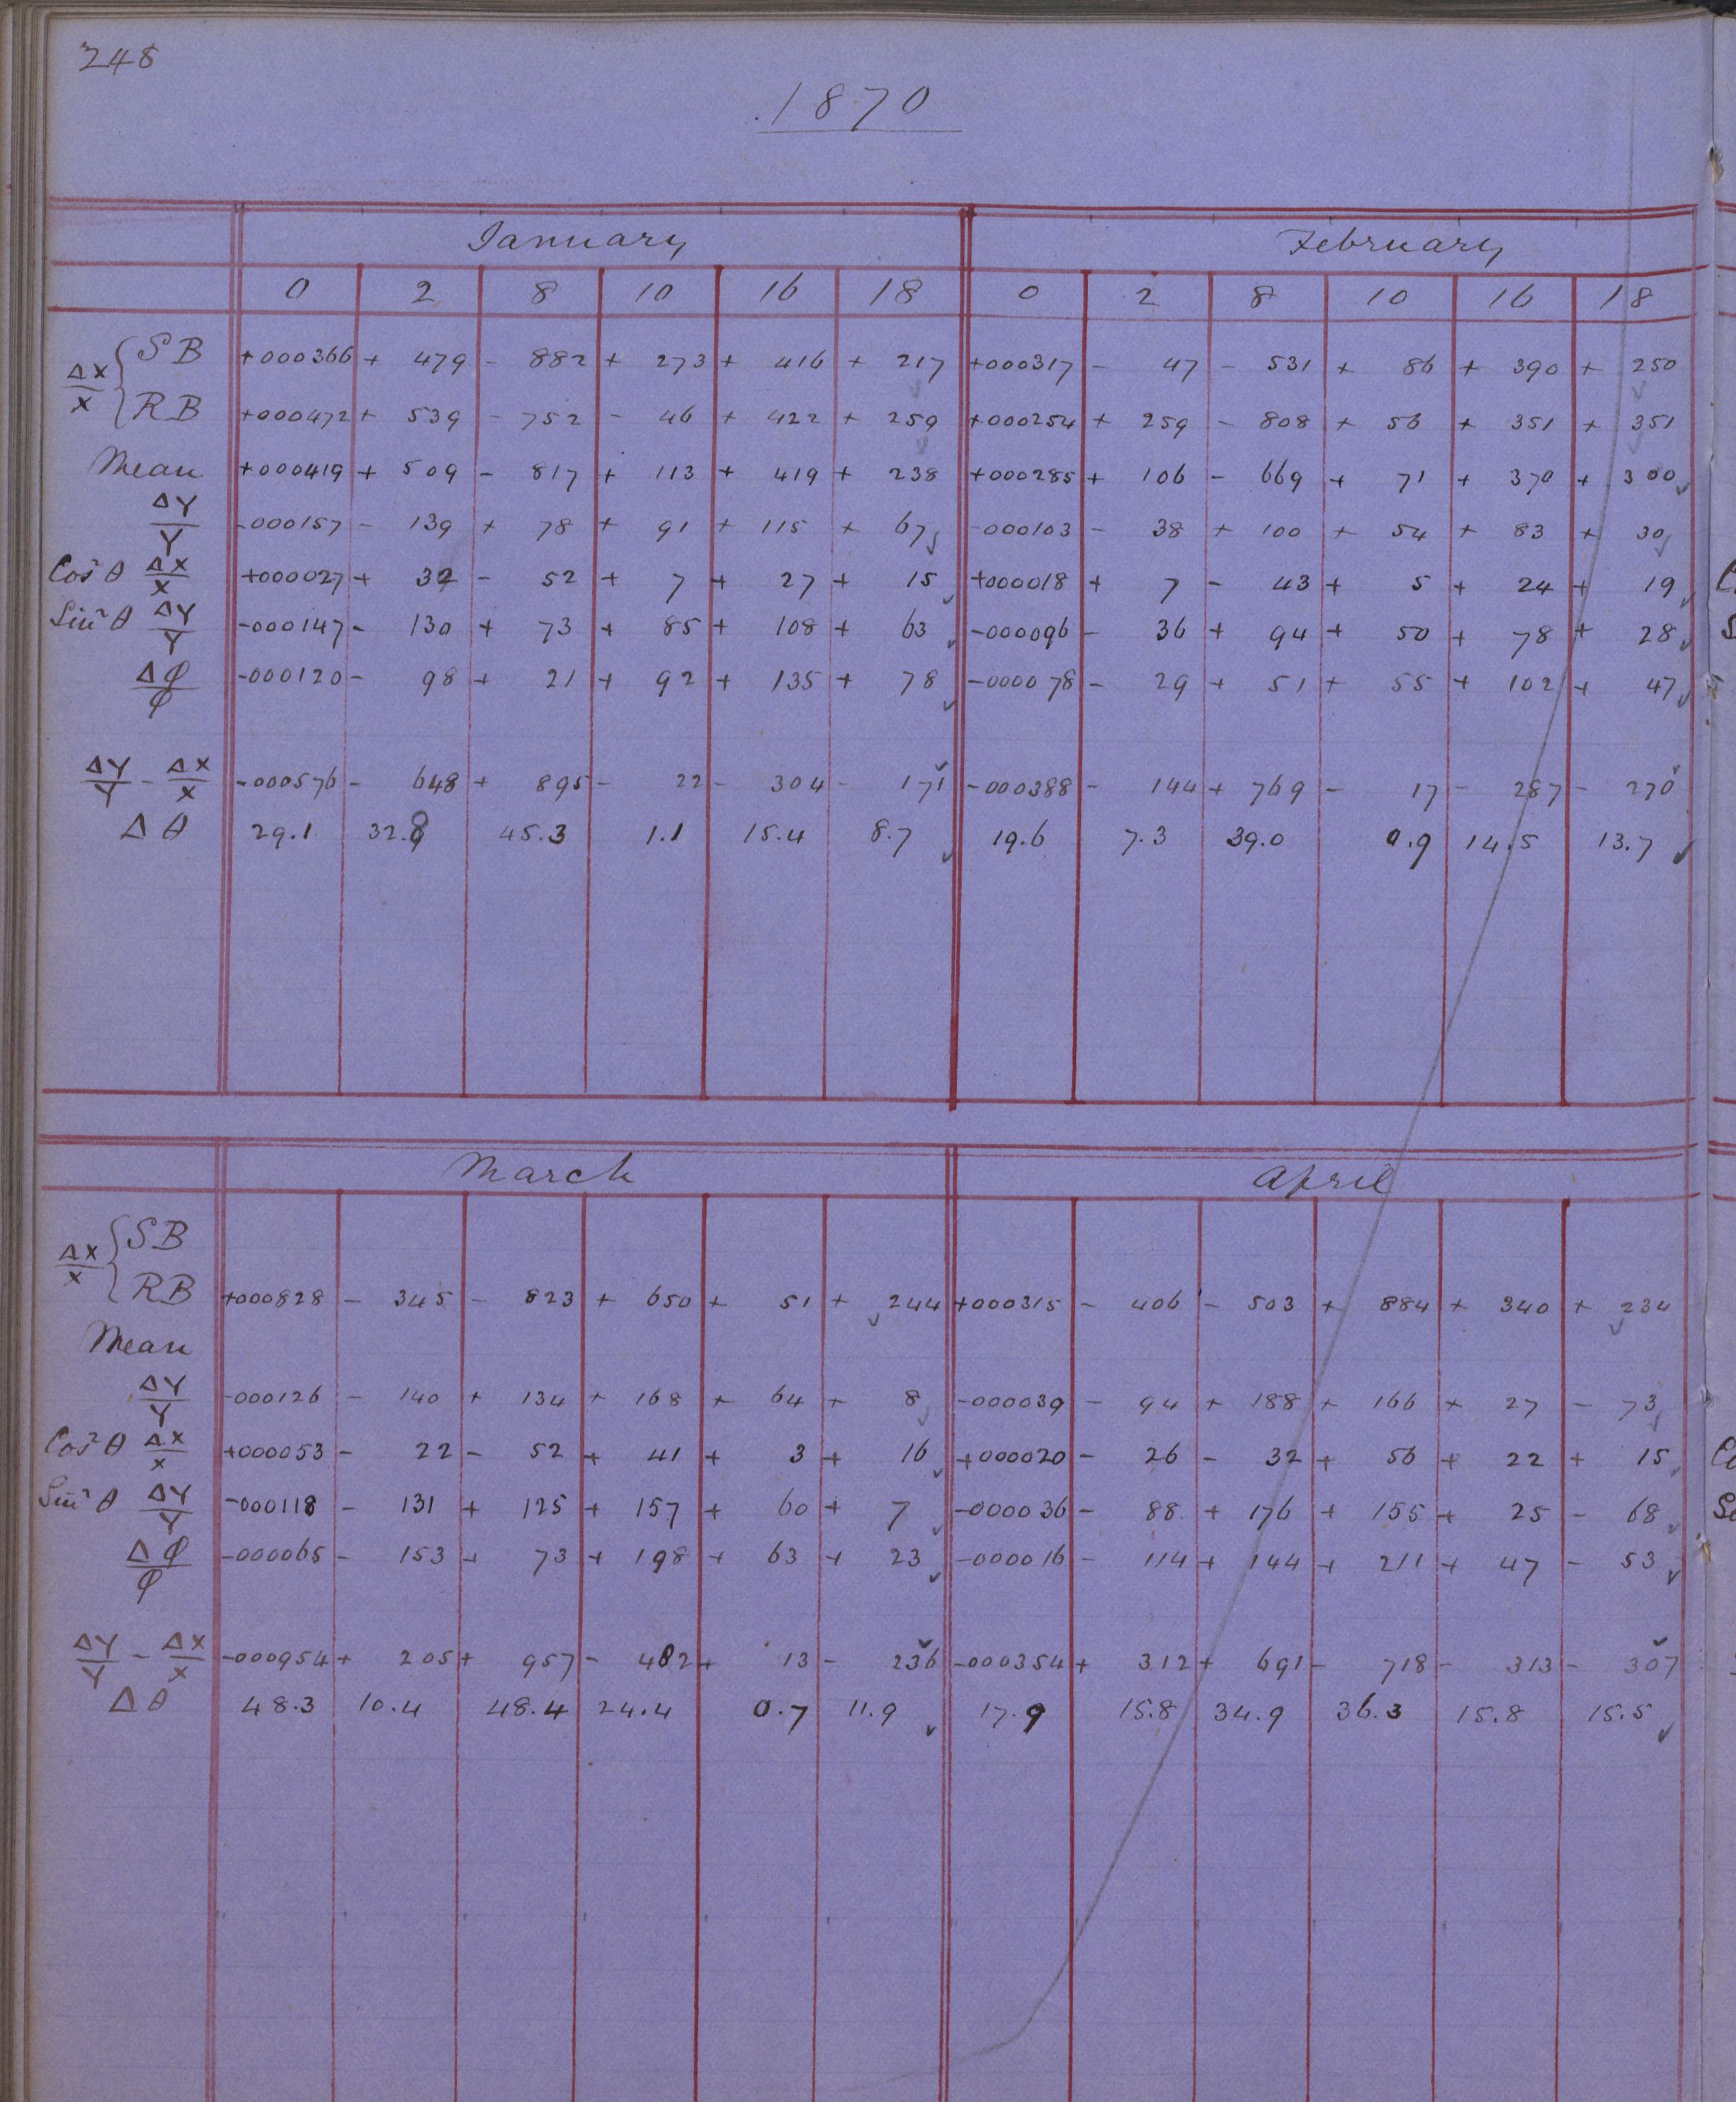 248
1870
January February
0 2 8 10 16 18 0 2 8 10 16 18
ΔX/X { SB +000366 + 479 - 882 + 273 + 416 + 217 +000317 - 47 - 531 + 86 + 390 + 250
RB +000472 + 539 - 752 - 46 + 422 + 259 +000254 + 259 - 808 + 56 + 351 + 351
Mean +000419 + 509 - 817 + 113 + 419 + 238 +000285 + 106 - 669 + 71 + 370 + 300
ΔY/Y -000157 - 139 + 78 + 91 + 115 + 67 -000103 - 38 + 100 + 54 + 83 + 30
Cos²θ ΔX/X +000027 + 32 - 52 + 7 + 27 + 15 +000018 + 7 - 43 + 5 + 24 + 19
Sin²θ ΔY/Y -000147 - 130 + 73 + 85 + 108 + 63 -000096 - 36 + 94 + 50 + 78 + 28
Δφ/φ -000120 - 98 + 21 + 92 + 135 + 78 -000078 - 29 + 51 + 55 + 102 + 47
ΔY/Y - ΔX/X -000576 - 648 + 895 - 22 - 304 - 171 -000388 - 144 + 769 - 17 - 287 - 270
Δθ 29.1 32.8 45.3 1.1 15.4 8.7 19.6 7.3 39.0 0.9 14.5 13.7
March April
ΔX/X { SB
RB +000828 - 345 - 823 + 650 + 51 + 244 +000315 - 406 - 503 + 884 + 340 + 234
Mean
ΔY/Y -000126 - 140 + 134 + 168 + 64 + 8 -000039 - 94 + 188 + 166 + 27 - 73
Cos²θ ΔX/X +000053 - 22 - 52 + 41 + 3 + 16 +000020 - 26 - 32 + 56 + 22 + 15
Sin²θ ΔY/Y -000118 - 131 + 125 + 157 + 60 + 7 -000036 - 88 + 176 + 155 + 25 - 68
Δφ/φ -000065 - 153 + 73 + 198 + 63 + 23 -000016 - 114 + 144 + 211 + 47 - 53
ΔY/Y - ΔX/X -000954 + 205 + 957 - 482 + 13 - 236 -000354 + 312 + 691 - 718 - 313 - 307
Δθ 48.3 10.4 48.4 24.4 0.7 11.9 17.9 15.8 34.9 36.3 15.8 15.5